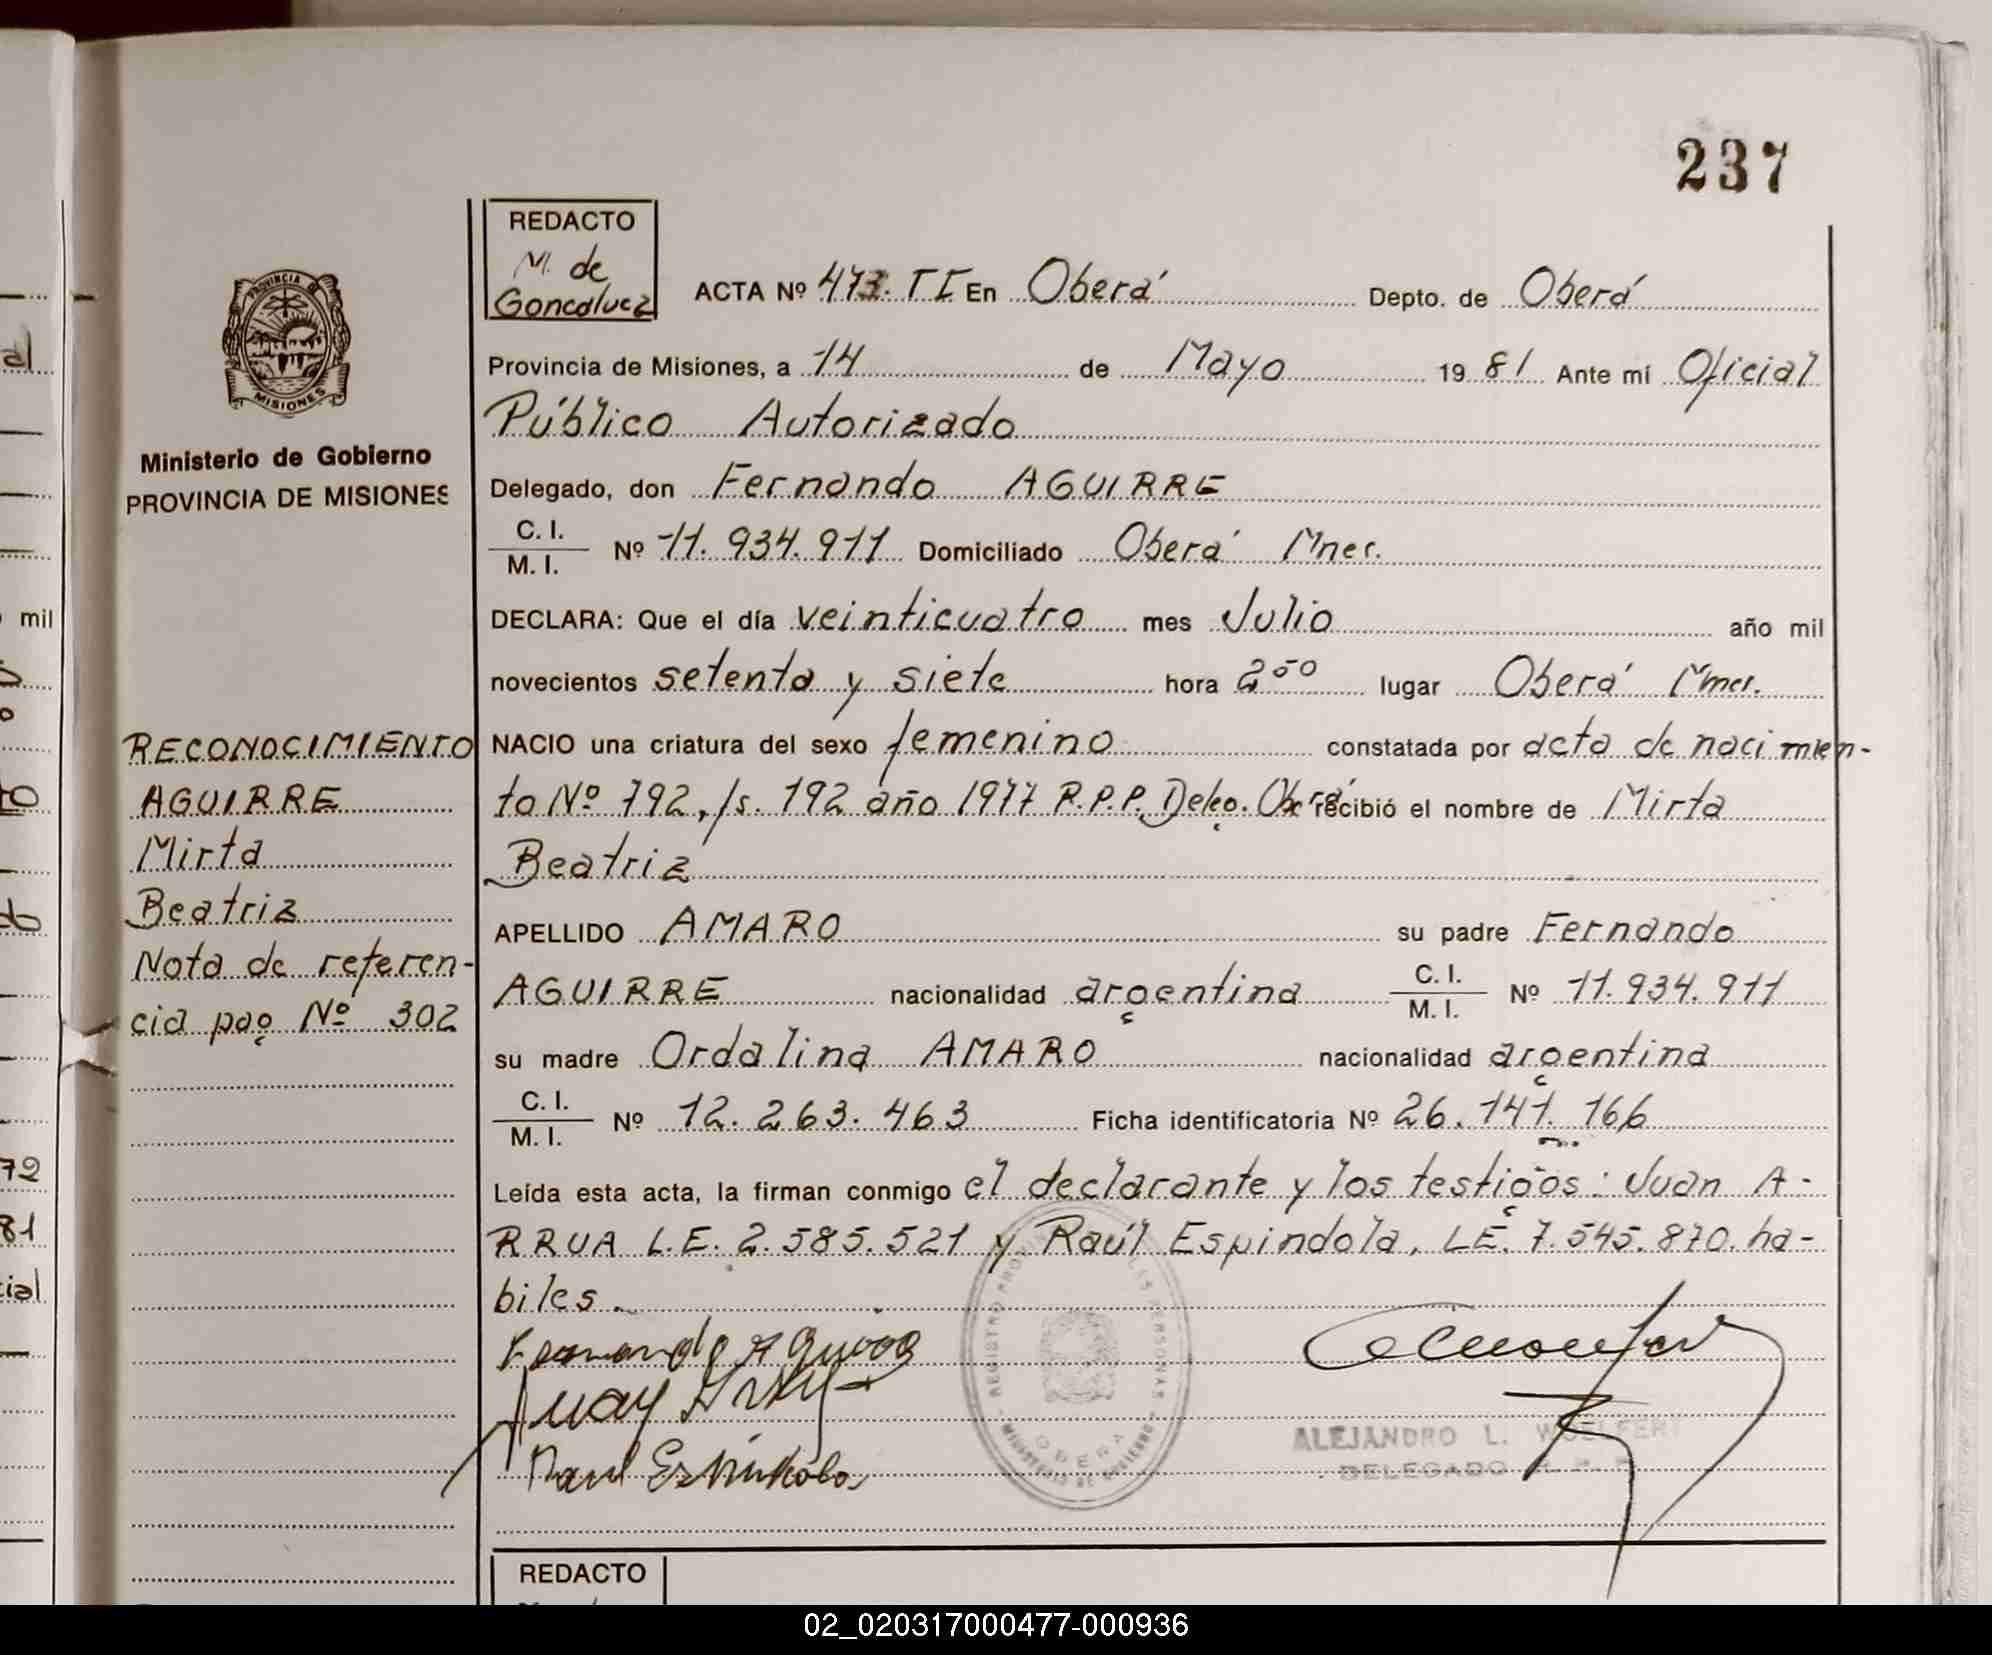 237
REDACTO
M. de
Goncalvez
ACTA Nº 473. TI En Oberá Depto. de Oberá
Provincia de Misiones, a 14 de Mayo 1981 Ante mí Oficial
Público Autorizado
Delegado, don Fernando AGUIRRE
C. I.
M. I. Nº 11.934.911 Domiciliado Oberá Mnes.
DECLARA: Que el día veinticuatro mes Julio año mil
novecientos setenta y siete hora 2⁵⁰ lugar Oberá Mnes.
NACIO una criatura del sexo femenino constatada por acta de nacimien-
to Nº 792, fs. 192 año 1977 R.P.P. Deleg. Oberá recibió el nombre de Mirta
Beatriz
APELLIDO AMARO su padre Fernando
AGUIRRE nacionalidad argentina C. I.
M. I. Nº 11.934.911
su madre Ordalina AMARO nacionalidad argentina
C. I.
M. I. Nº 12.263.463 Ficha identificatoria Nº 26.141.166
Leída esta acta, la firman conmigo el declarante y los testigos: Juan A-
RRUA L.E. 2.585.521 y Raúl Espindola, LE. 7.545.870. ha-
biles.
Fernando Aguirre
Juan
Raul Espindola
REGISTRO PERSONAS
MINISTERIO DE GOBIERNO
OBERA
ALEJANDRO L. WOELFERT
DELEGADO
REDACTO
PROVINCIA DE
MISIONES
Ministerio de Gobierno
PROVINCIA DE MISIONES
RECONOCIMIENTO
AGUIRRE
Mirta
Beatriz
Nota de referen-
cia pag Nº 302
mil
72
81
cial
02_020317000477-000936